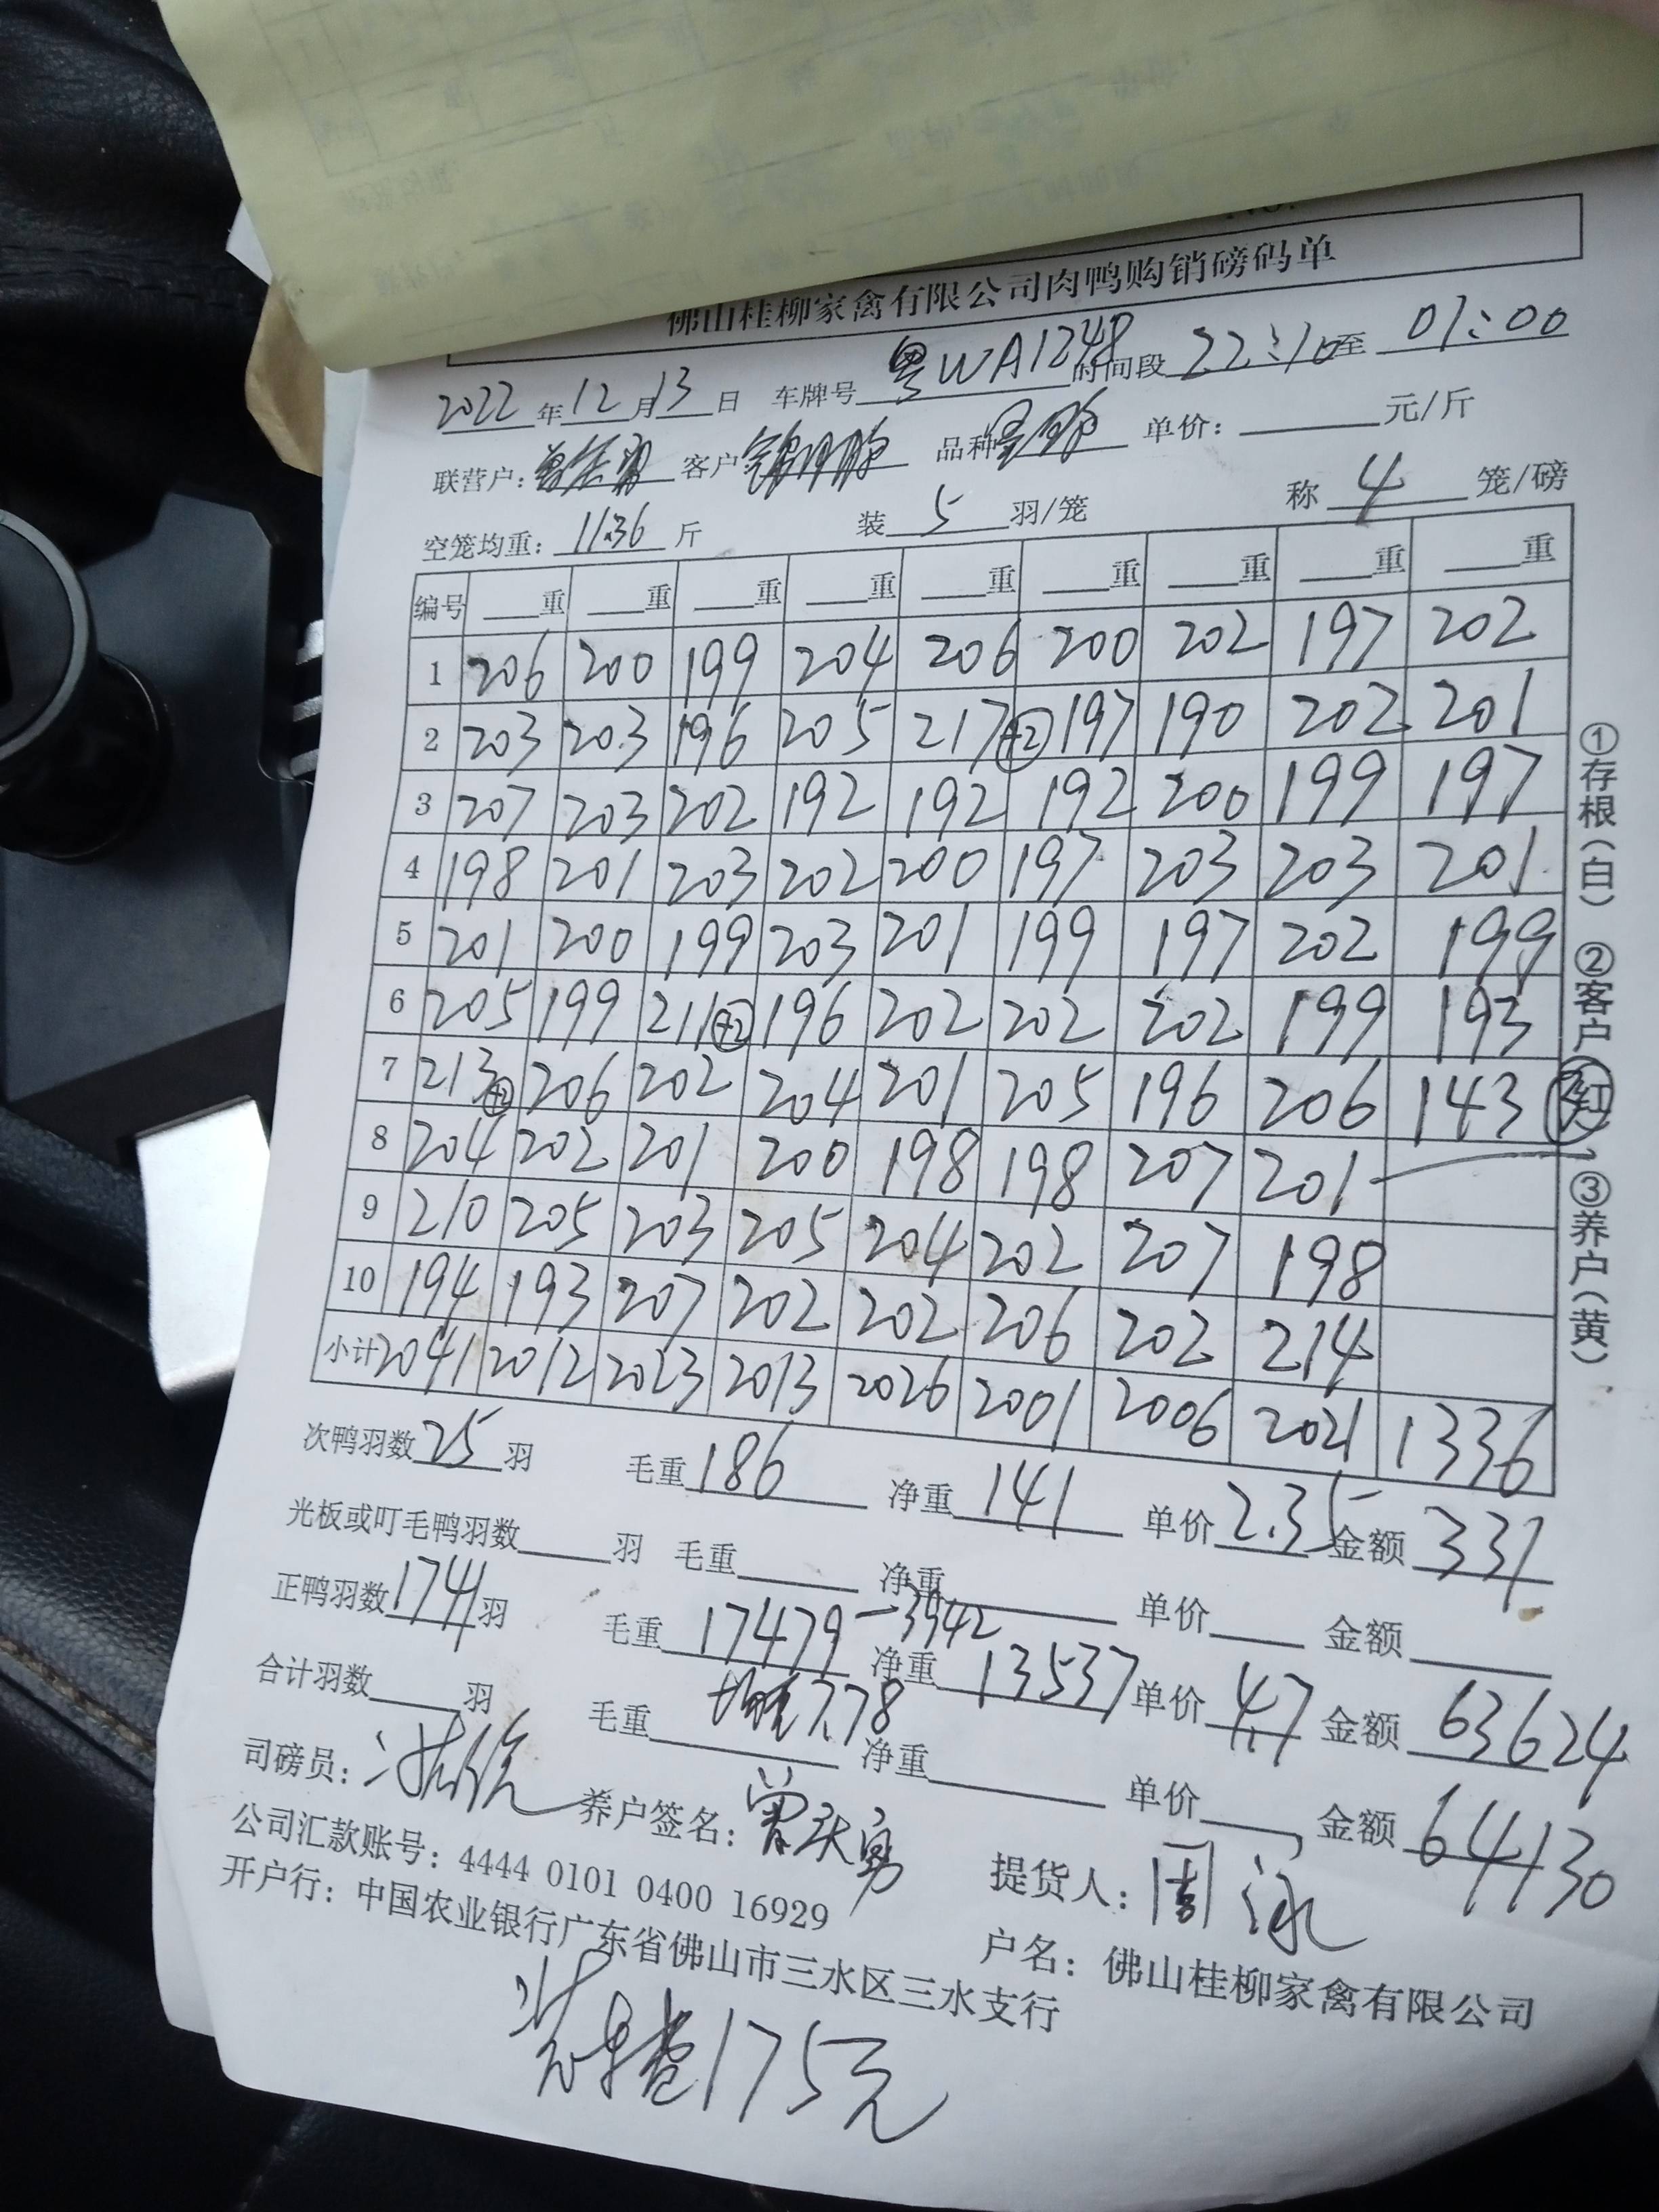 佛山桂柳家禽有限公司肉鸭购销磅码单
2022年12月13日 车牌号 粤WA1248 时间段 22:10至 01:00
联营户: 客户 品种 单价: 元/斤
空笼均重: 11.36 斤 装 5 羽/笼 称 4 笼/磅
编号 重 重 重 重 重 重 重 重 重
1 206 200 199 204 206 200 202 197 202
2 203 203 196 205 217 +2 197 190 202 201
3 207 203 202 192 192 192 200 199 197
4 198 201 203 202 200 197 203 203 201
5 201 200 199 203 201 199 197 202 199
6 205 199 211 +2 196 202 202 202 199 193
7 213 +2 206 202 204 201 205 196 206 143
8 204 202 201 200 198 198 207 201
9 210 205 203 205 204 202 207 198
10 194 193 207 202 202 206 202 214
小计 2041 2012 2023 2013 2026 2001 2006 2021 1336
次鸭羽数 25 羽 毛重 186 净重 141 单价 2.35 金额 331
光板或叮毛鸭羽数 羽 毛重 净重 单价 金额
正鸭羽数 1741 羽 毛重 17479-3942 净重 13537 单价 4.7 金额 63624
均重7.78
合计羽数 羽 毛重 净重 单价 金额 64130
司磅员: 养户签名: 曾庆勇 提货人: 周泳
公司汇款账号: 4444 0101 0400 16929 户名: 佛山桂柳家禽有限公司
开户行: 中国农业银行广东省佛山市三水区三水支行
装车费175元
①存根(白) ②客户(红) ③养户(黄)